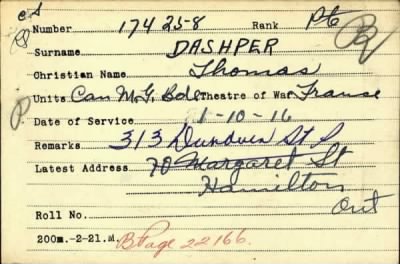 C.S
Number 174258 Rank Pte
Surname DASHPER
Christian Name Thomas
Units Can M.G. Bde Theatre of War France
Date of Service 1-10-16
Remarks 313 Dundurn St S
Latest Address 70 Margaret St
Hamilton
Ont
Roll No.
200m.-2-21.M. B Page 22166.